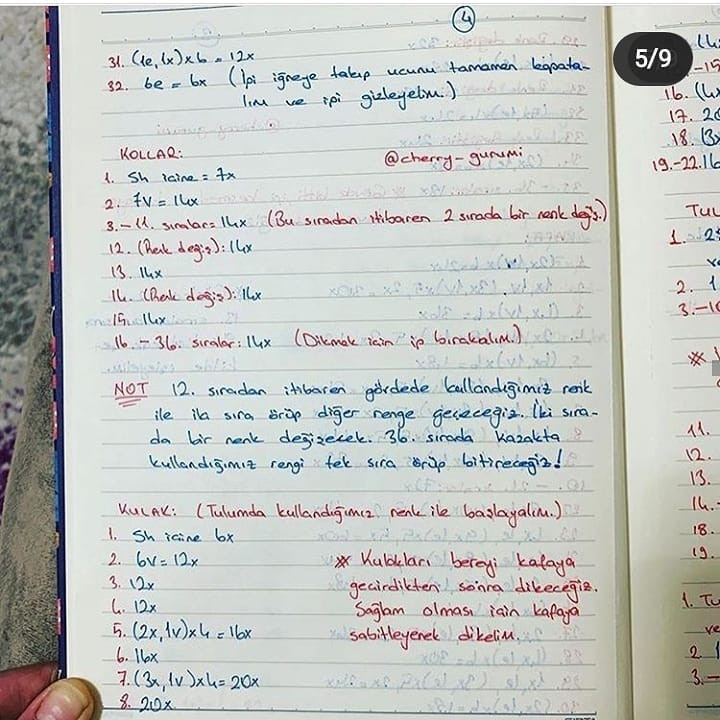 4
5/9
31. (1e, 1x)x6 = 12x
32. 6e = 6x (İpi iğneye takıp ucunu tamamen kapata-
lım ve ipi gizleyelim.)
KOLLAR:
@cherry-gurumi
1. Sh içine = 7x
2. 7V = 14x
3.-11. sıralar= 14x (Bu sıradan itibaren 2 sırada bir renk değiş.)
12. (Renk değiş): 14x
13. 14x
14. (Renk değiş): 14x
15. 14x
16. - 36. sıralar: 14x (Dikmek için ip bırakalım.)
NOT 12. sıradan itibaren gövdede kullandığımız renk
ile iki sıra örüp diğer renge geçeceğiz. İki sıra-
da bir renk değişecek. 36. sırada kazakta
kullandığımız rengi tek sıra örüp bitireceğiz!
KULAK: (Tulumda kullandığımız renk ile başlayalım.)
1. Sh içine 6x
2. 6V = 12x
3. 12x
4. 12x
5. (2x, 1v)x4 = 16x
6. 16x
7. (3x, 1v)x4 = 20x
8. 20x
* Kulakları bereyi kafaya
geçirdikten sonra dikeceğiz.
Sağlam olması için kafaya
sabitleyerek dikelim.
16. (4x
17. 20
18. (3x
19.-22. 16
TUL
1.
2. 1
3.-10
*
11.
12.
13.
14.
18.
19.
1. Tu
ve
2. 1
3.-